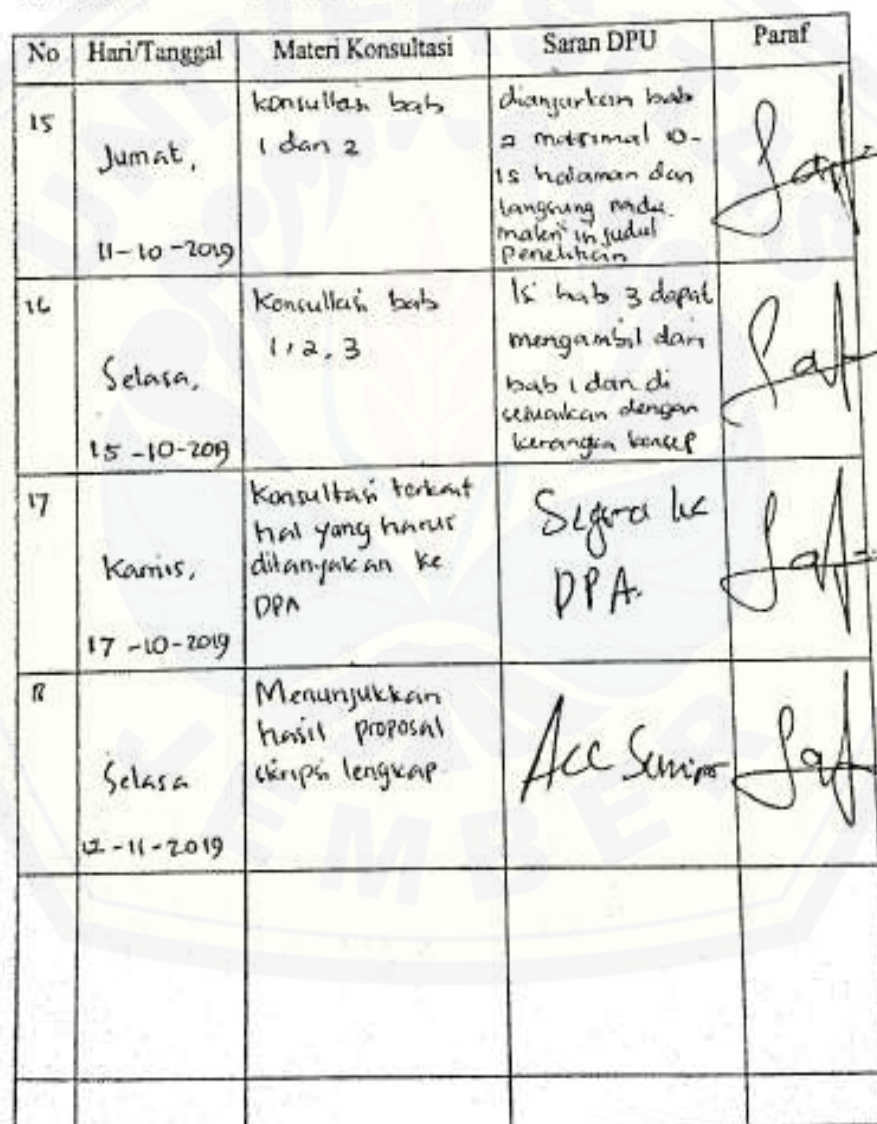 No Hari/Tanggal Materi Konsultasi Saran DPU Paraf
15
Jumat,
11-10-2019
konsultasi bab
1 dan 2
dianjurkan bab
2 maksimal 10-
15 halaman dan
langsung pada
materi judul
Penelitian
16
Selasa,
15-10-2019
Konsultasi bab
1, 2, 3
Isi bab 3 dapat
mengambil dari
bab 1 dan di
sesuaikan dengan
kerangka konsep
17
Kamis,
17-10-2019
Konsultasi terkait
hal yang harus
ditanyakan ke
DPA
Segera ke
DPA.
18
Selasa
12-11-2019
Menunjukkan
hasil proposal
skripsi lengkap
Acc Sempro
UNIVERSITAS
JEMBER